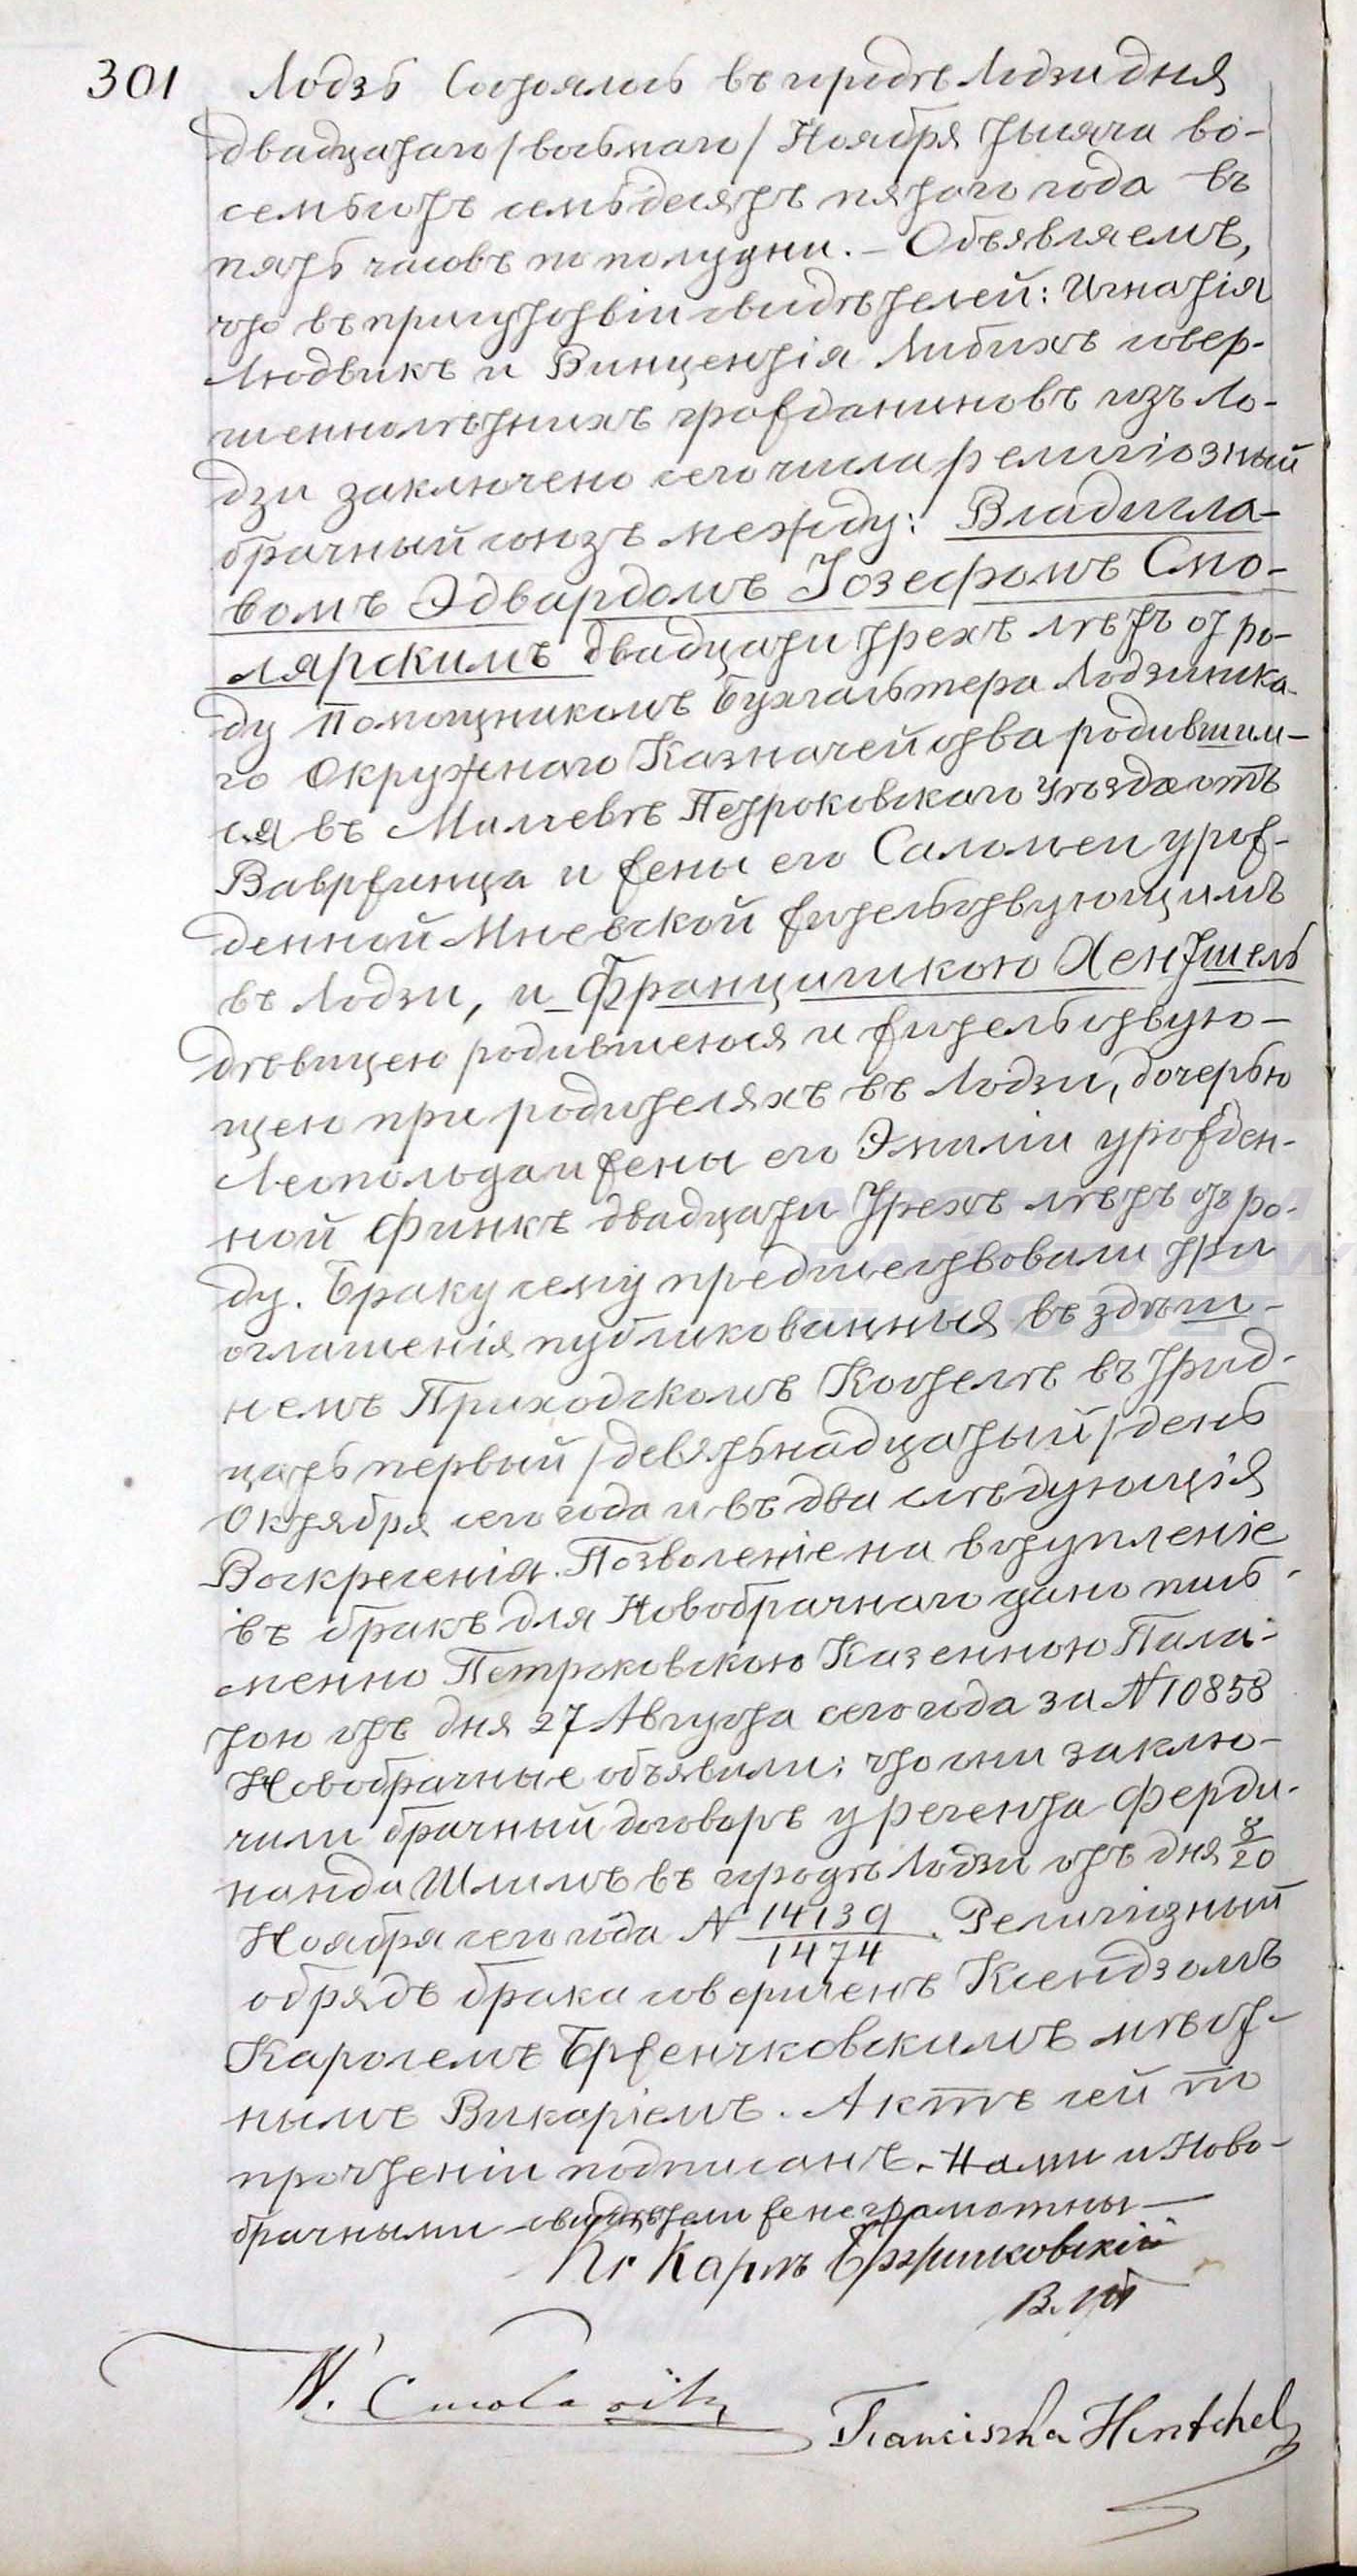 301 Лодзь Состоялось въ городѣ Лодзи дня
двадцатаго /восьмаго/ Ноября тысяча во-
семьсотъ семьдесятъ пятого года въ
пять часовъ по полудни. – Объявляемъ,
что въ присутствіи свидѣтелей: Игнатія
Людвикъ и Винцентія Либихъ совер-
шеннолѣтнихъ гражданиновъ изъ Ло-
дзи заключено сего числа религіозный
брачный союзъ между: Владисла-
вомъ Эдвардомъ Іозефомъ Смо-
лярскимъ двадцати трехъ лѣтъ от ро-
ду Помощникомъ Бухгальтера Лодзинска-
го Окружнаго Казначейства родившим-
ся въ Милеевѣ Петроковскаго уѣзда отъ
Вавржинца и жены его Саломеи урож-
денной Мневской жительствующимъ
въ Лодзи, и Францишкою Хентшель
дѣвицею родившеюся и жительствую-
щею при родителяхъ въ Лодзи, дочерью
Леопольда и жены его Эмиліи урожден-
ной Финкъ двадцати трехъ лѣтъ отъ ро-
ду. Браку сему предшествовали три
оглашенія публикованныя въ здѣш-
немъ Приходскомъ Костелѣ въ трид-
цать первый /девятьнадцатый/ день
Октября сего года и въ два слѣдующія
Воскресенія. Позволеніе на вступленіе
въ бракъ для Новобрачнаго дано пись-
менно Петроковскою Казенною Пала-
тою отъ дня 27 Августа сего года за N 10858
Новобрачные объявили: что они заклю-
чили брачный договоръ у регента Ферди-
нанда Шлимъ въ городѣ Лодзи отъ дня 8/20
Ноября сего года N 14139/1474. Религіозный
обрядъ брака совершенъ Ксендзомъ
Каролемъ Брженчковскимъ мѣст-
нымъ Викаріемъ. Актъ сей по
прочтеніи подписанъ. Нами и Ново-
брачными свидѣтели же неграмотны —
Кс Карлъ
W.
Franciszka Hentschel
ARCHIWUM
PAŃSTWOWE
W ŁODZI